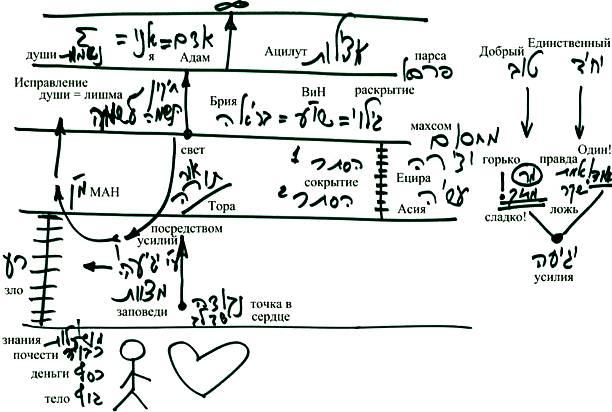 ∞
души נשמות Σ = אני = אדם
я Адам
Ацилут אצילות
парса
פרסא
Исправление
души = лишма
תיקון
הנשמה = לשמה
Брия ВиН раскрытие
גילוי = שו"ע = בריאה
махсом
מחסום
свет
אור
תורה
Тора
МАН
מ"ן
1 הסתר
сокрытие
2 הסתר
Ецира יצירה
Асия עשיה
посредством
усилий
ע"י יגיעה!
מצוות
заповеди
רע
зло
נקודה
שבלב
точка в
сердце
знания מושכלות
почести כבוד
деньги כסף
тело גוף
Добрый Единственный
טוב יחיד
горько מר правда אמת Один!
! מתוק
сладко! שקר ложь
יגיעה
усилия